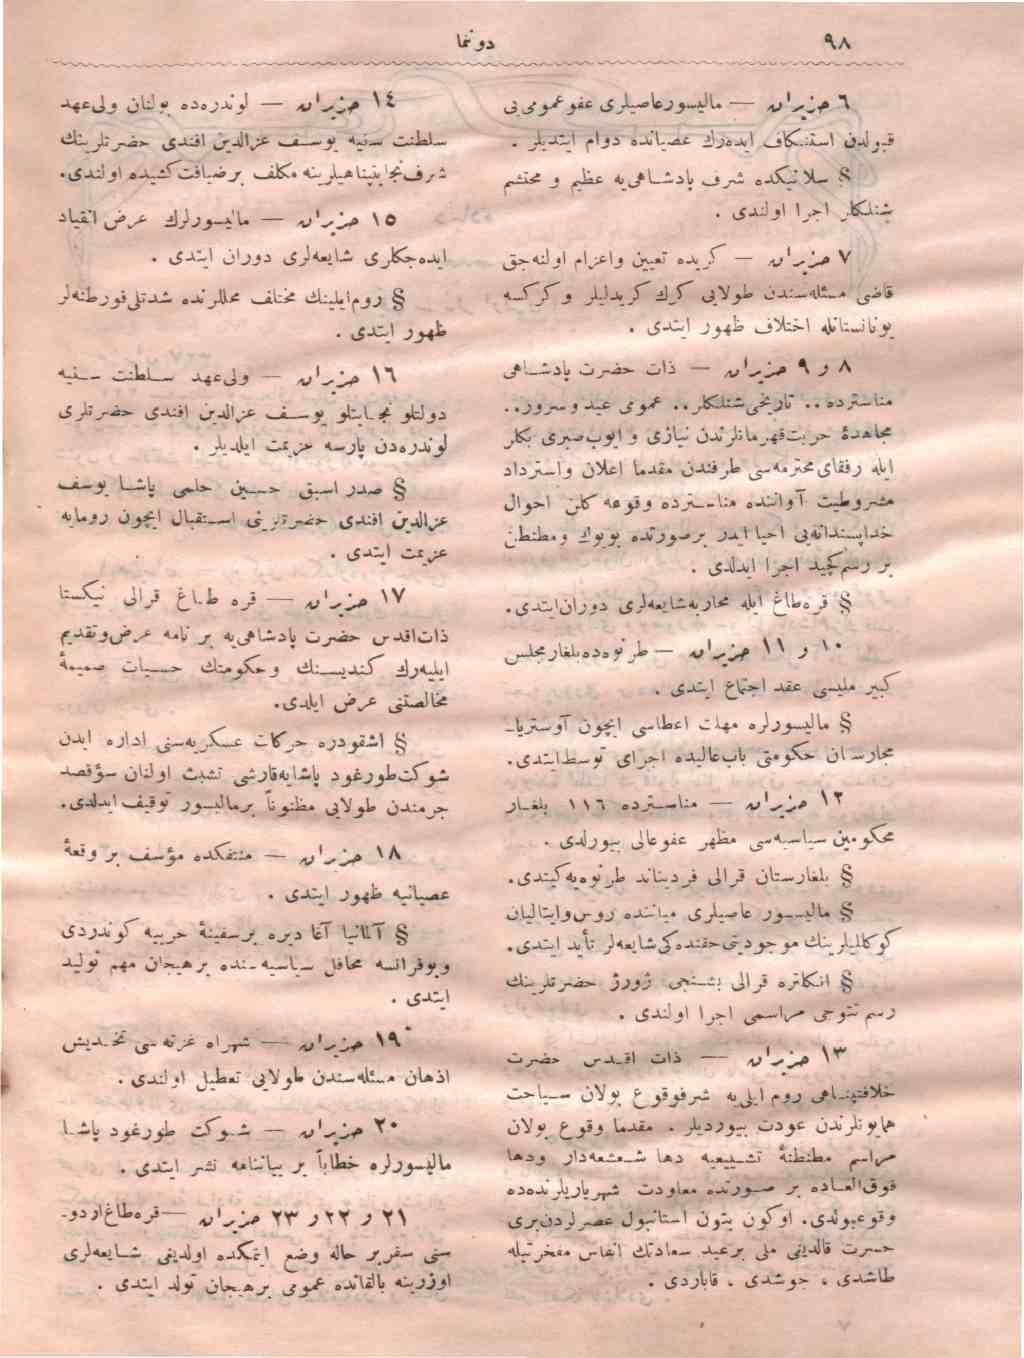 ٩٨
دونما
٦ حزیران — مالیسورعاصیلری عفو عمومی‌یی
قبولدن استنکاف ایده‌رك عصیانده دوام ایتدیلر .
§ سلانیکده شرف پادشاهی‌یه عظیم و محتشم
شنلکلر اجرا اولندی .
٧ حزیران — کریده تعیین واعزام اولنه‌جق
قاضی مسئله‌سندن طولایی کرك کریدلیلر و کرکسه
یونانستانله اختلاف ظهور ایتدی .
٨ و ٩ حزیران — ذات حضرت پادشاهی
مناسترده .. تاریخی شنلکلر .. عمومی عید وسرور..
مجاهدۀ حریت‌قهرمانلرندن نیازی و ایوب‌صبری بکلر
ایله رفقای‌محترمه‌سی طرفندن مقدما اعلان واسترداد
مشروطیت آواننده مناسترده وقوعه کلن احوال
خداپسندانه‌یی احیا ایدر برصورتده بویوك ومطنطن
بر رسم‌کچید اجرا ایدلدی .
§ قره‌طاغ ایله محاربه‌شایعه‌لری دوران‌ایتدی.
١٠ و ١١ حزیران — طرنوه‌ده‌بلغارمجلس
کبیر ملیسی عقد اجتماع ایتدی .
§ مالیسورلره مهلت اعطاسی ایچون آوستریا‑
مجارستان حکومتی باب‌عالیده اجرای توسط‌ایتدی.
١٢ حزیران — مناسترده ١١٦ بلغار
محکومین سیاسیه‌سی مظهر عفوعالی بیورلدی .
§ بلغارستان قرالی فردیناند طرنوه‌یه‌کیتدی.
§ مالیسور عاصیلری میاننده روس‌وایتالیان
کوکللیلرینك موجودیتی‌حقنده‌کی‌شایعه‌لر تأید ایتدی.
§ انکلتره قرالی بشنجی ژورژ حضرتلرینك
رسم تتوجی مراسمی اجرا اولندی .
١٣ حزیران — ذات اقدس حضرت
خلافتپناهی روم ایلی‌یه شرفوقوع بولان سیاحت
همایونلرندن عودت بیوردیلر . مقدما وقوع بولان
مراسم مطنطنۀ تشییعیه دها شعشعه‌دار ودها
فوق‌العاده بر صورتده معاودت شهریاریلرنده‌ده
وقوعبولدی. اوکون بتون استانبول عصرلردن‌بری
حسرت قالدیغی ملی برعید سعادتك انفاس مفخرتیله
طاشدی ، جوشدی ، قاباردی .
١٤ حزیران — لوندره‌ده بولنان ولی‌عهد
سلطنت سنیه یوسف عزالدین افندی حضرتلرینك
شرف‌نجابتپناهیلرینه مکلف برضیافت‌کشیده اولندی.
١٥ حزیران — مالیسورلرك عرض انقیاد
ایده‌جکلری شایعه‌لری دوران ایتدی .
§ روم‌ایلینك مختلف محللرنده شدتلی‌فورطنه‌لر
ظهور ایتدی .
١٦ حزیران — ولی‌عهد سلطنت سنیه
دولتلو نجابتلو یوسف عزالدین افندی حضرتلری
لوندره‌دن پارسه عزیمت ایلدیلر .
§ صدر اسبق حسین حلمی پاشا یوسف
عزالدین افندی حضرتلرینی استقبال ایچون رومایه
عزیمت ایتدی .
١٧ حزیران — قره طاغ قرالی نیکیتا
ذات‌اقدس حضرت پادشاهی‌یه بر نامه عرض‌وتقدیم
ایلیه‌رك کندیسنك وحکومتك حسیات صمیمۀ
مخالصتنی عرض ایلدی.
§ اشقودره حرکات عسکریه‌سنی اداره ایدن
شوکت‌طورغود پاشایه‌قارشی تشبث اولنان سؤقصد
جرمندن طولایی مظنوناً برمالیسور توقیف‌ایدلدی.
١٨ حزیران — منتفکده مؤسف بر وقعۀ
عصیانیه ظهور ایتدی .
§ آلمانیا آغا دیره برسفینۀ حربیه کوندردی
وبوفرانسه محافل سیاسیه‌سنده برهیجان مهم تولید
ایتدی .
١٩ حزیران — شهراه غزته‌سی تخدیش
اذهان مسئله‌سندن طولایی تعطیل اولندی .
٢٠ حزیران — شوکت طورغود پاشا
مالیسورلره خطاباً بر بیاننامه نشر ایتدی .
٢١ و ٢٢ و ٢٣ حزیران — قره‌طاغ‌اردو‑
سنی سفربر حاله وضع ایتمکده اولدیغی شایعه‌لری
اوزرینه بالقانده عمومی برهیجان تولد ایتدی .